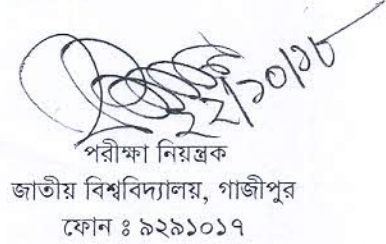 ২২/১০/১৮
পরীক্ষা নিয়ন্ত্রক
জাতীয় বিশ্ববিদ্যালয়, গাজীপুর
ফোন ঃ ৯২৯১০১৭